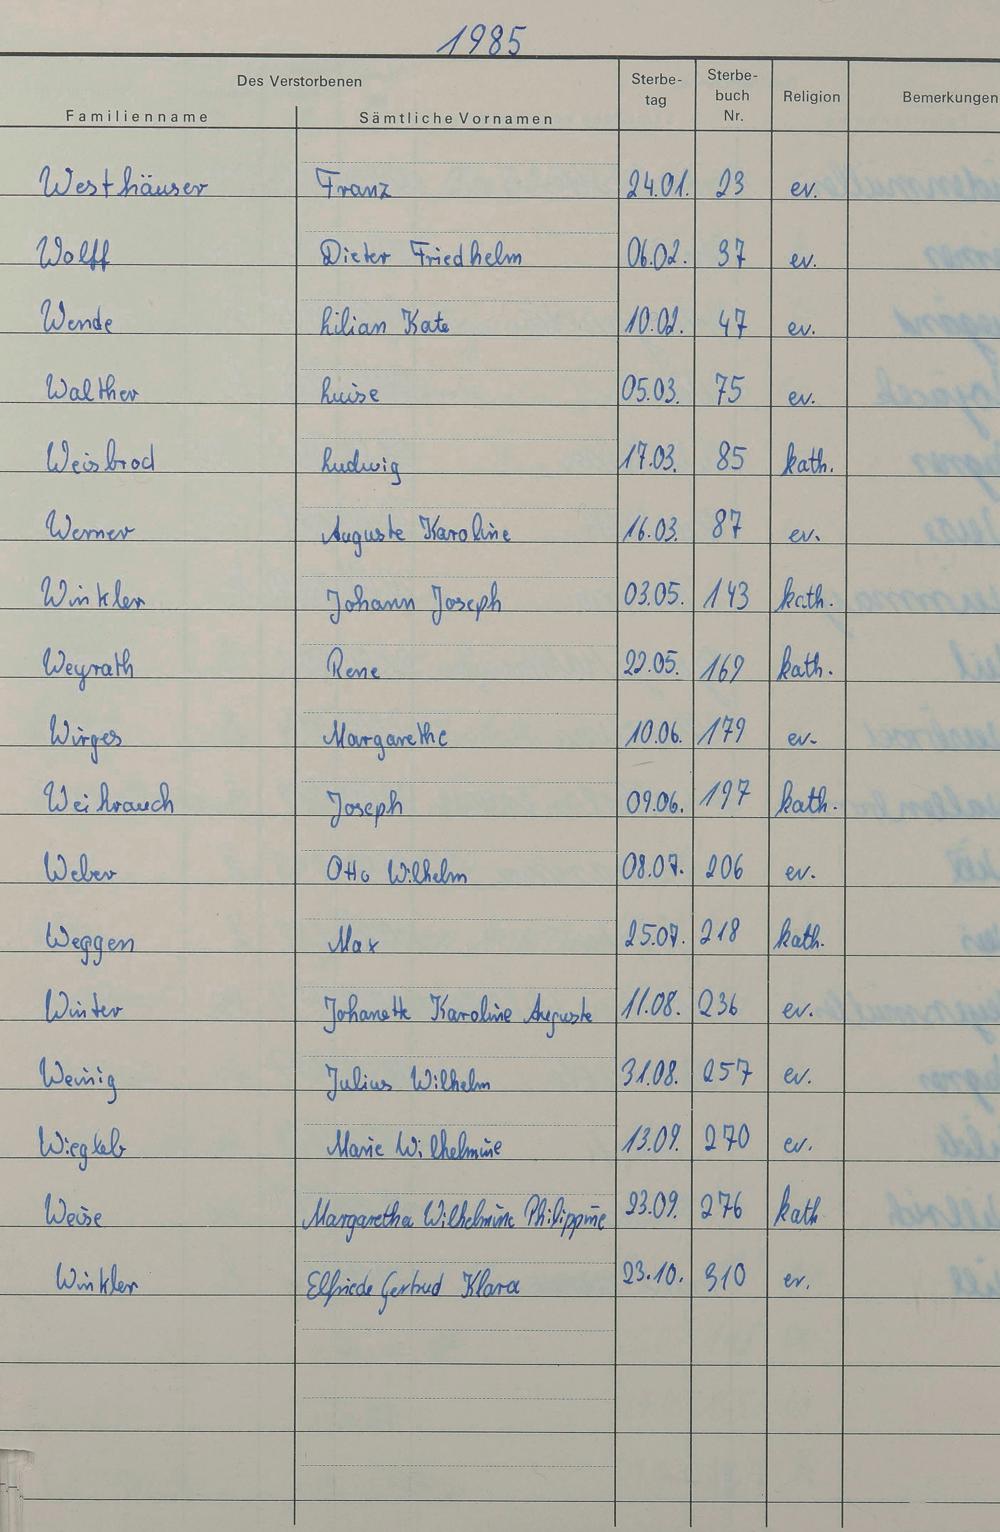 1985
Des Verstorbenen
Familienname Sämtliche Vornamen Sterbe-tag Sterbe-buch Nr. Religion Bemerkungen
Westhäuser Franz 24.01. 23 ev.
Wolff Dieter Friedhelm 06.02. 37 ev.
Wende Lilian Kate 10.02. 47 ev.
Walther Luise 05.03. 75 ev.
Weisbrod Ludwig 17.03. 85 kath.
Werner Auguste Karoline 16.03. 87 ev.
Winkler Johann Joseph 03.05. 143 kath.
Weyrath Rene 22.05. 169 kath.
Wirges Margarethe 10.06. 179 ev.
Weihrauch Joseph 09.06. 197 kath.
Weber Otto Wilhelm 08.07. 206 ev.
Weggen Max 25.07. 218 kath.
Winter Johanette Karoline Auguste 11.08. 236 ev.
Weinig Julius Wilhelm 31.08. 257 ev.
Wiegleb Marie Wilhelmine 13.09. 270 ev.
Weise Margaretha Wilhelmine Philippine 23.09. 276 kath
Winkler Elfriede Gertrud Klara 23.10. 310 ev.